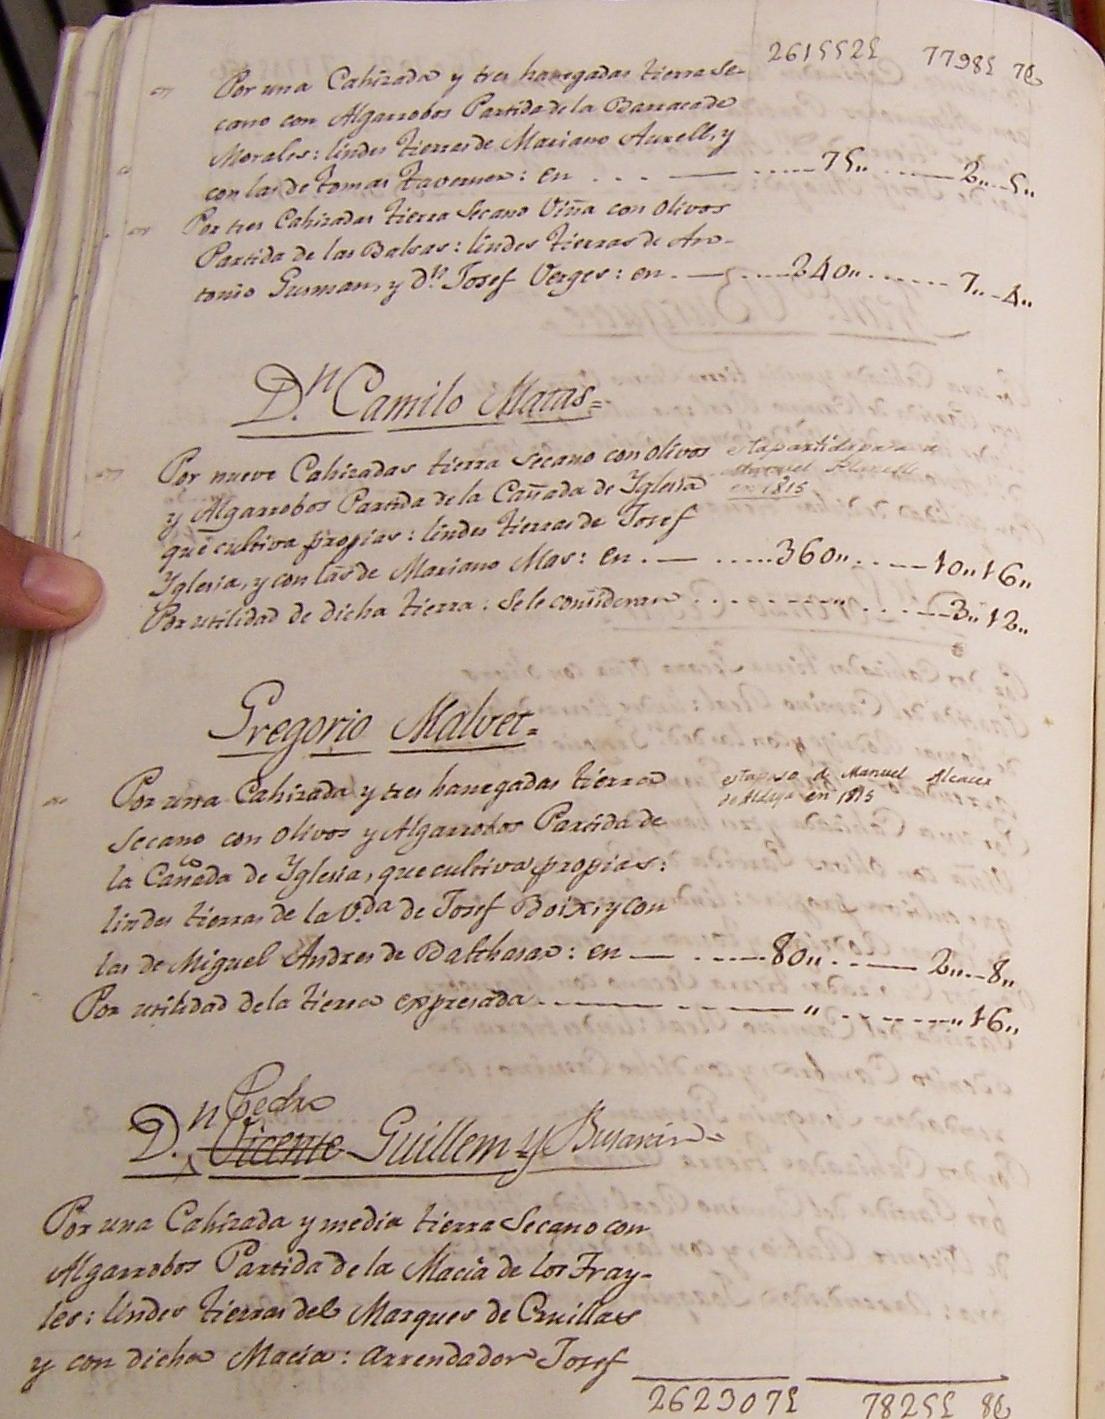 261552£ 7798£ 7
Por una Cahizada y tres hanegadas tierra se-
cano con Algarrobos Partida de la Barraca de
Morales: lindes tierras de Mariano Aurell, y
con las de tomas taverner: en . . . — .....75,, ......2,,..5,,
Por tres Cahizadas tierra Secano Viña con olivos
Partida de las Balsas: lindes tierras de An-
tonio Gusman, y Dn. Josef Verges: en .— .....240,, ...... 7,,..4,,
Dn. Camilo Matas=
Por nueve Cahizadas tierra secano con olivos
esta partida pasa a
y Algarrobos Partida de la Cañada de Yglesia
Manuel
en 1815
que cultiva propias: lindes tierras de Josef
Yglesia, y con las de Mariano Mas: en .— .....360,, .....10,,16,,
Por utilidad de dicha tierra: se le consideran . . . . . . ,, ......3,,12,,
Gregorio Malvet=
Por una Cahizada y tres hanegadas tierra
esta paso a Manuel Alcacer
de Aldaya en 1815
Secano con olivos y Algarrobos Partida de
la Cañada de Yglesia, que cultiva propias:
lindes tierras de la Vda. de Josef Boix; y con
las de Miguel Andres de Balthasar: en — .....80,, ..... 2,,..8,,
Por utilidad de la tierra expresada ......... ,, ......,,16,,
Pedro
Dn. Vicente Guillem y Busarán=
Por una Cahizada y media tierra Secano con
Algarrobos Partida de la Macia de los Fray-
les: lindes tierras del Marques de Cruillas
y con dicha Macia: arrendador Josef
262307£ 7825£ 8